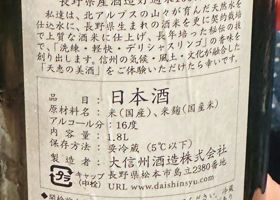 私達は、北アルプスの山々が育んだ天然水を
仕込水に、長野県で生まれた酒米を更に契約栽培
で上質な酒米に仕上げ、長年培った秘伝の技
で、「洗練・軽快・デリシャスリンゴ」の香味を
創り出します。信州の気候・風土・文化が融合した
「天恵の美酒」をご体験いただけたら幸いです。
品目：日本酒
原材料名：米(国産)、米麹(国産米)
アルコール分：16度
内容量：1.8L
保存方法：要冷蔵(5℃以下)
製造者：大信州酒造株式会社
長野県松本市島立2380番地
URL www.daishinsyu.com
タブ
キャップ
(中栓)